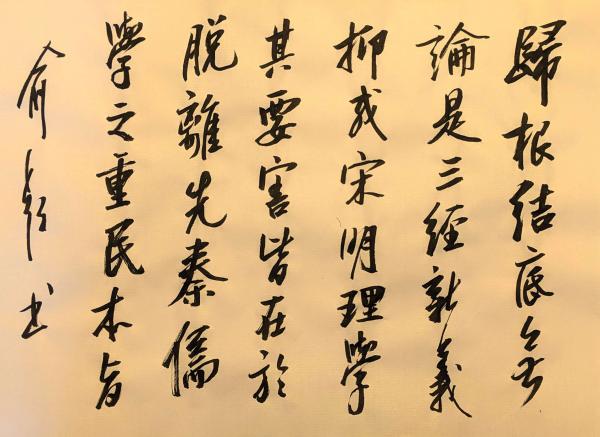 歸根結底無
論是三經新義
抑或宋明理學
其要害皆在於
脫離先秦儒
學之重民本旨
俞 書